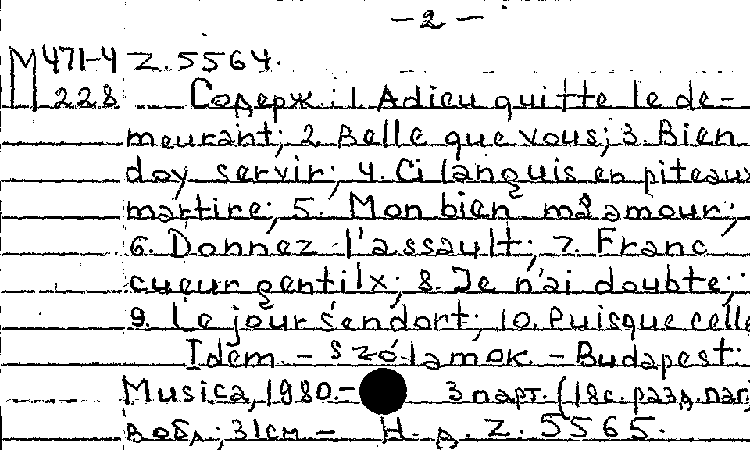 — 2 —
М 471-4 Z. 5564.
228 Содерж.: 1. Adieu quitte le de-
meurant; 2. Belle que vous; 3. Bien
doy servir; 4. Ci languis en piteaux
martire; 5. Mon bien m'amour;
6. Donnez l'assault; 7. Franc
cueur gentilx; 8. Je n'ai doubte;
9. Le jour s'endort; 10. Puisque celle
Idem. — Szólamok. — Budapest:
Musica, 1980. — 3 парт. (18с. разд. паг)
в обл.; 31см. — Н. д. Z. 5565.